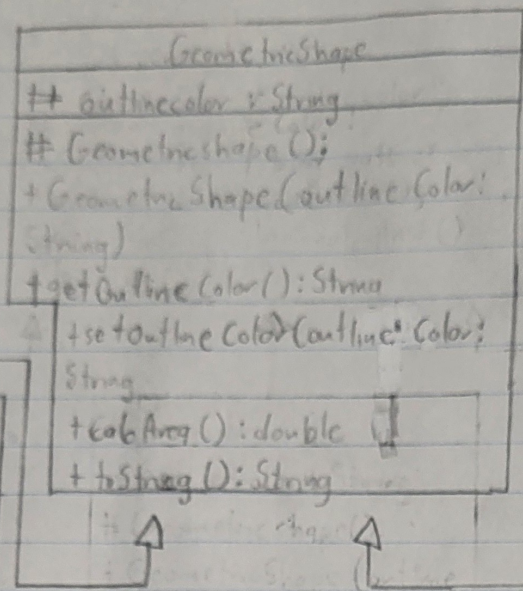 GeometricShape
# outlinecolor : String
# Geometricshape();
+ Geometric Shape(outline Color:
String)
+getOutline Color(): String
+setOutline Color(outline Color:
String
+calcArea(): double
+ toString(): String